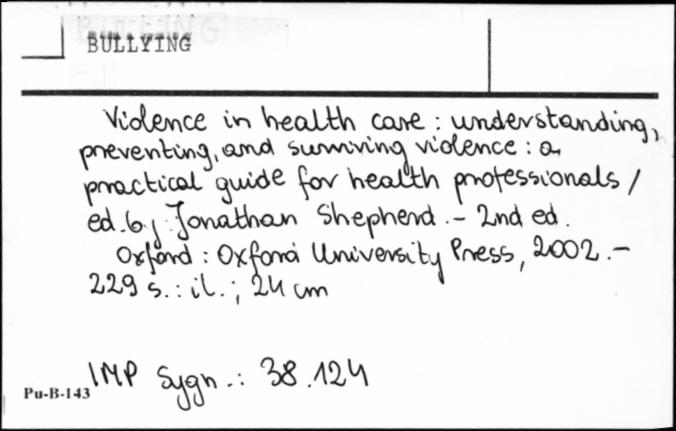 BULLYING
Violence in health care : understanding,
preventing, and surviving violence : a
practical guide for health professionals /
ed. by Jonathan Shepherd. - 2nd ed.
Oxford : Oxford University Press, 2002. -
229 s. : il. ; 24 cm
IMP Sygn.: 38.124
Pu-B-143